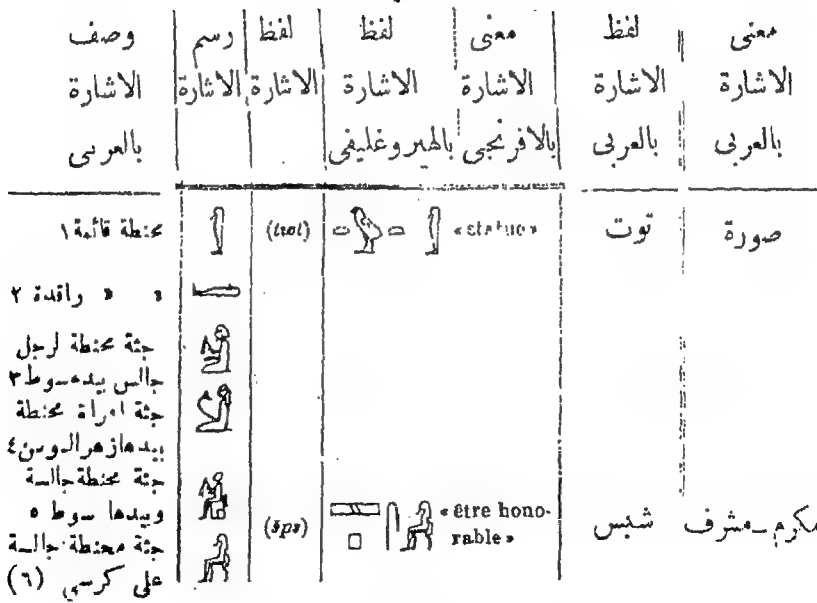 معنى الاشارة بالعربى | لفظ الاشارة بالعربى | معنى الاشارة بالافرنجى | لفظ الاشارة بالهيروغليفى | لفظ الاشارة | رسم الاشارة | وصف الاشارة بالعربى
صورة | توت | «statue» | (twt) | محنطة قائمة ١
« « راقدة ٢
جثة محنطة لرجل
جالس بيده سوط ٣
جثة امراة محنطة
بيدها زهر السوسن ٤
جثة محنطة جالسة
وبيدها سوط ٥
مكرم ــ مشرف | شبس | «être hono-
rable» | (šps)
جثة محنطة جالسة
على كرسي (٦)